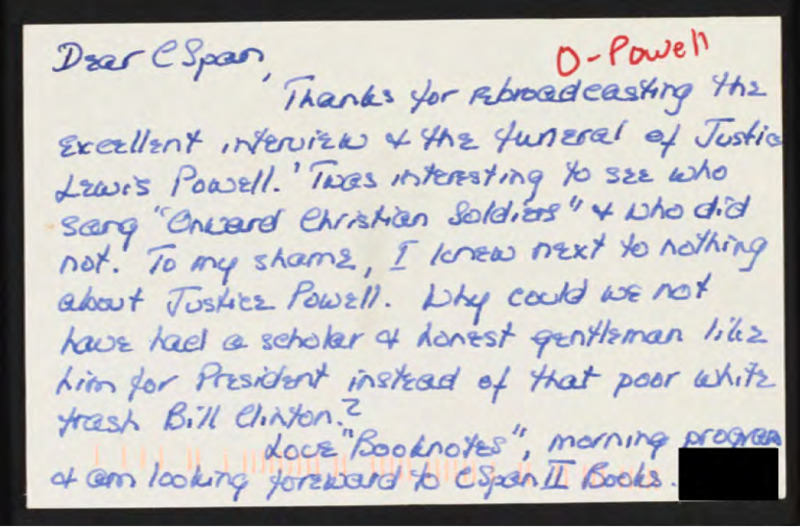 O-Powell
Dear CSpan,
Thanks for rebroadcasting the
excellent interview & the funeral of Justice
Lewis Powell. 'Twas interesting to see who
sang "Onward Christian Soldiers" & who did
not. To my shame, I knew next to nothing
about Justice Powell. Why could we not
have had a scholar & honest gentleman like
him for President instead of that poor white
trash Bill Clinton.?
Love "Booknotes", morning program
& am looking foreward to CSpan II Books.